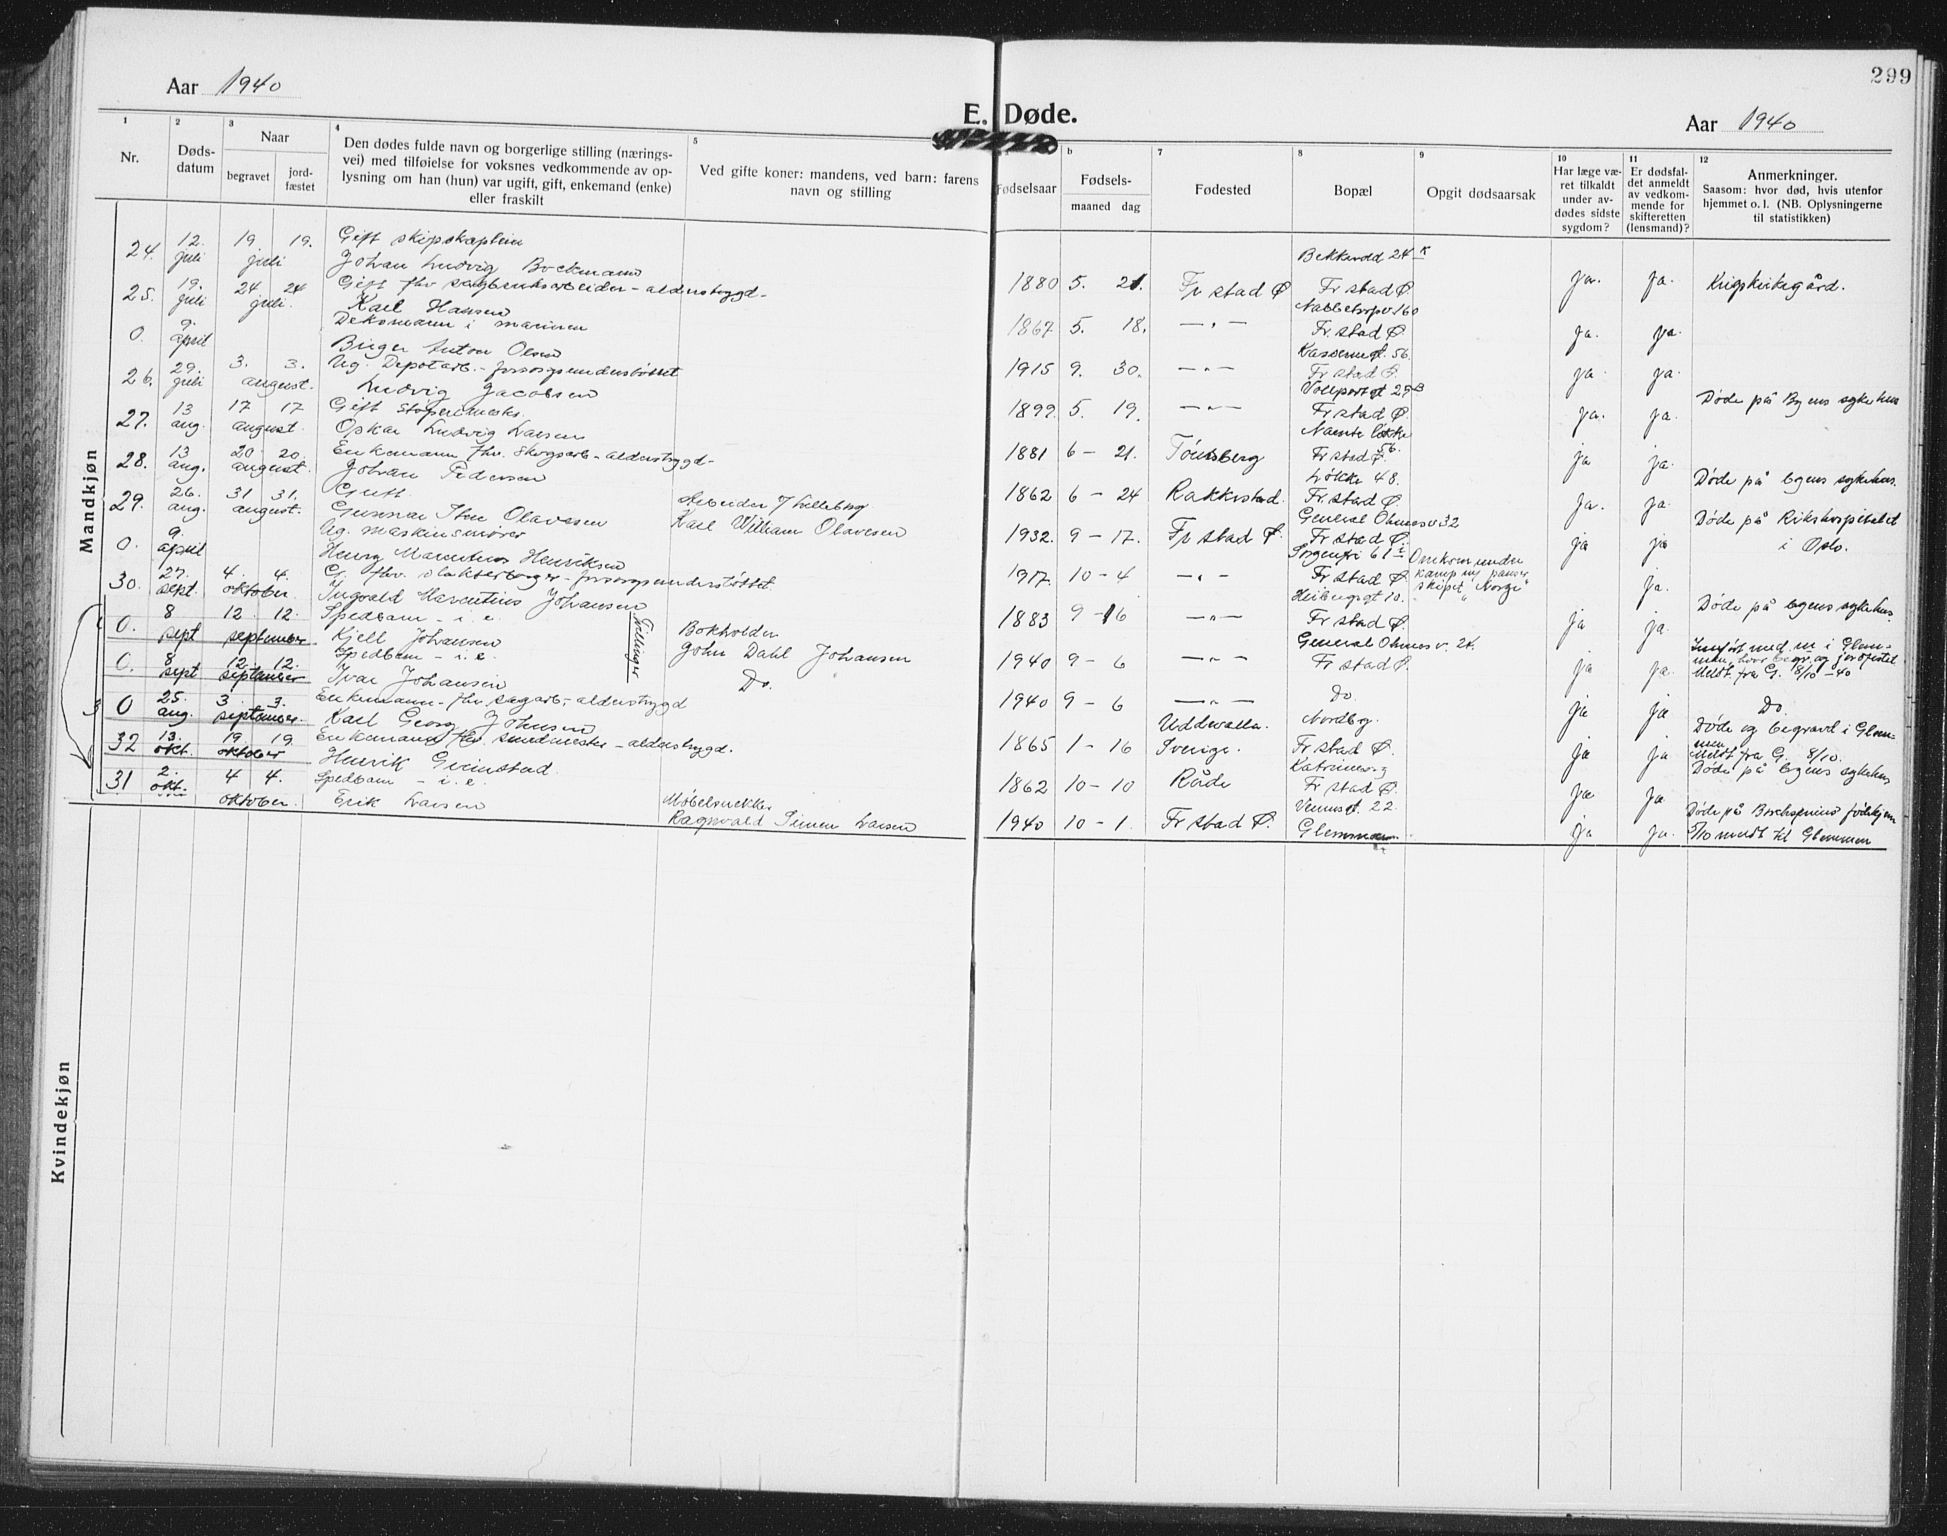 299
Aar 1940
E. Døde.
Aar 1940
1 Nr.
2 Døds-datum
3 Naar
begravet
jord-fæstet
4 Den dødes fulde navn og borgerlige stilling (nærings-
vei) med tilføielse for voksnes vedkommende av op-
lysning om han (hun) var ugift, gift, enkemand (enke)
eller fraskilt
5 Ved gifte koner: mandens, ved barn: farens
navn og stilling
Fødselsaar
b Fødsels-
maaned dag
7 Fødested
8 Bopæl
9 Opgit dødsaarsak
10 Har læge væ-
ret tilkaldt
under av-
dødes sidste
sygdom?
11 Er dødsfal-
det anmeldt
av vedkom-
mende for
skifteretten
(lensmand)?
12 Anmerkninger.
Saasom: hvor død, hvis utenfor
hjemmet o. l. (NB. Oplysningerne
til statistikken)
Mandkjøn
24. 12. juli 19 juli 19. Gift skipskaptein
Johan Ludvig Bockmann
1880 5. 21. Fr stad Ø Fr stad Ø ja. ja.
25. 19. juli 24 juli 24 Gift fhv sagbruksarbeider - alderstrygd -
Karl Hansen
1867 5. 18. — " — Fr. stad Ø ja. ja.
0. 9. april Deksmann i marinen
Birger Anton Olsen
1915 9. 30. — " — Fr stad Ø. ja. ja.
26. 29. juli 3. august. 3. Ug. Depotarb. - forsorgsunderstøttet
Ludvig Jacobsen
1899 5. 19. — " — Fr. stad Ø ja. ja. Døde på Byens sykehus
27. 13 aug. 17 august. 17 Gift
Oskar Ludvig Larsen
1881 6 - 21. Tønsberg Fr stad Ø. ja ja.
28. 13 aug. 20 august. 20. Enkemann fhv. Skogsarb - alderstrygd -
Johan Pedersen
1862 6 - 24 Rakkestad. Løkke 48. Fr. stad Ø ja. ja. Døde på byens sykehus.
29. 26. aug. 31 august. 31. Gutt
Gunnar Olavesen
Arbeider
Karl William Olavesen
1932. 9 - 17. Fr stad Ø. General Ohmes v 32 Fr. stad Ø. ja ja Døde på Rikshospitalet
i Oslo.
0. 9. april Ug. maskinsmører
Henry Marentius Henriksen
1917. 10 - 4 — " — Fr stad Ø. Omkom under
kamp m/ panser
skipet "Norge" ja.
30. 27. sept. 4. oktober. 4. G. fhv. - forsorgsunderstøttet
Ingvald Marentius Johansen
1883 9 - 16 — " — Fr. stad Ø ja ja. Døde på byens sykehus.
0. 8 sept 12. september 12. Spedbarn - i. e.
Kjell Johansen
Tvillinger
Bokholder
John Dahl Johansen
1940 9 - 6 — " — General Ohmes v. 24. Fr stad Ø. ja ja. Innført med nr i Glem-
men, hvor begr. og jordfestet
Meldt fra G. 8/10 - 40
0. 8 sept 12. september 12. Spedbarn - i. e.
Ivar Johansen
Do.
1940 9 - 6 — " — Do ja ja Do.
0 25. aug. 3 september. 3. Enkemann - fhv. sagarb. - alderstrygd
Karl Georg Johnsen
1865 1 - 16 Uddevalla. Sverige. Nordbg. Fr stad Ø. ja ja Døde og begravd i Glem-
men
Meldt fra G. 8/10.
32 13. okt. 19 oktober 19. Enkemann fhv. smedmester - alderstrygd.
Henrik Grimstad.
1862 10 - 10 Råde Fr stad Ø. ja ja Døde på byens sykehus
31 2. okt. 4 oktober. 4. Spedbarn - i. e.
Erik Larsen
Møbelsnekker
Ragnvald Simen Larsen
1940 10 - 1. Fr stad Ø. Venusgt. 22. Glemmen ja ja. Døde på Borchsenius fødehjem
5/10 meldt til Glemmen
Kvindekjøn